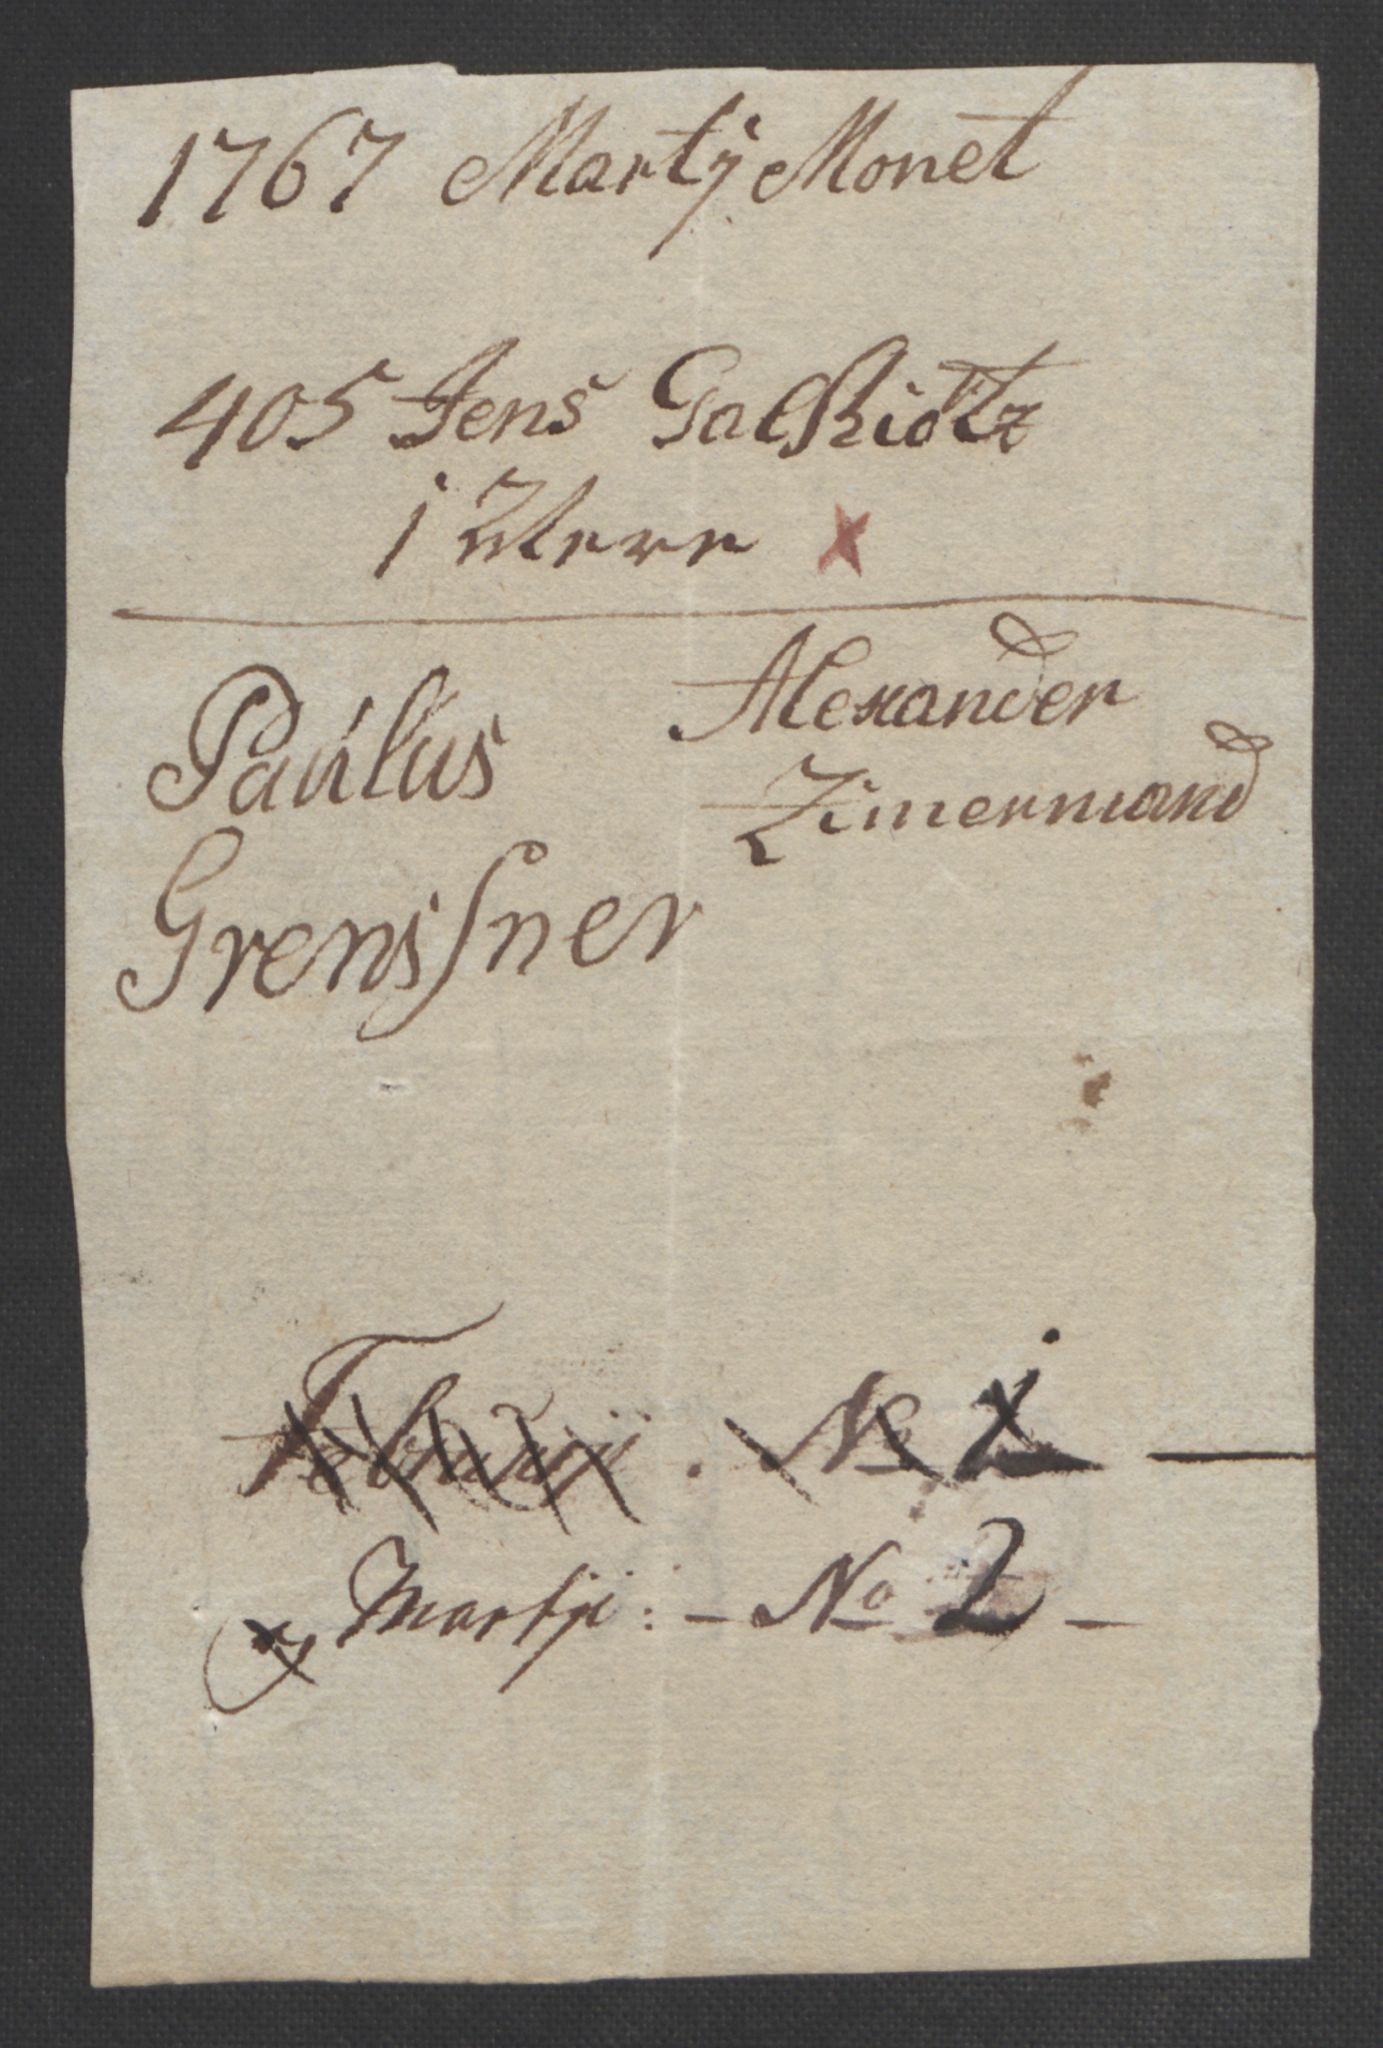 1767 Martij Monet
405 Jens Galschiøtz
1
Paulus
Grensſner
Alexander
Zimermand
Februarij . No 1
Martji : - No 2 -